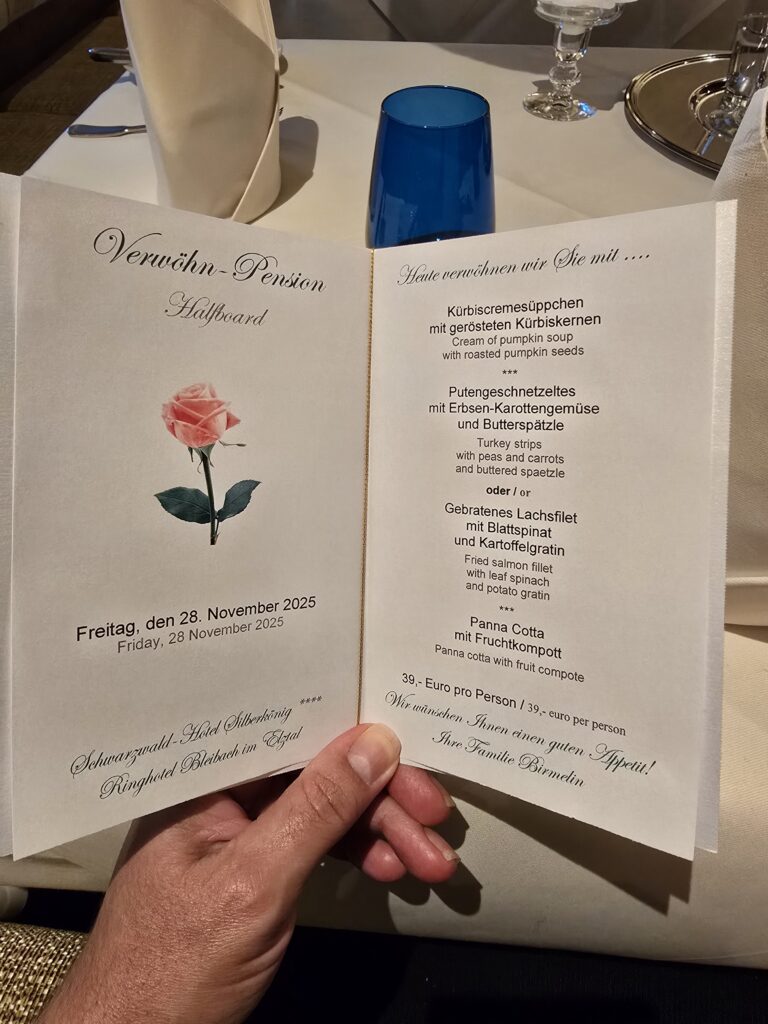 Verwöhn-Pension
Halfboard
Freitag, den 28. November 2025
Friday, 28 November 2025
Schwarzwald-Hotel Silberkönig ****
Ringhotel Bleibach im Elztal
Heute verwöhnen wir Sie mit ....
Kürbiscremesüppchen
mit gerösteten Kürbiskernen
Cream of pumpkin soup
with roasted pumpkin seeds
***
Putengeschnetzeltes
mit Erbsen-Karottengemüse
und Butterspätzle
Turkey strips
with peas and carrots
and buttered spaetzle
oder / or
Gebratenes Lachsfilet
mit Blattspinat
und Kartoffelgratin
Fried salmon fillet
with leaf spinach
and potato gratin
***
Panna Cotta
mit Fruchtkompott
Panna cotta with fruit compote
39,- Euro pro Person / 39,- euro per person
Wir wünschen Ihnen einen guten Appetit!
Ihre Familie Birmelin